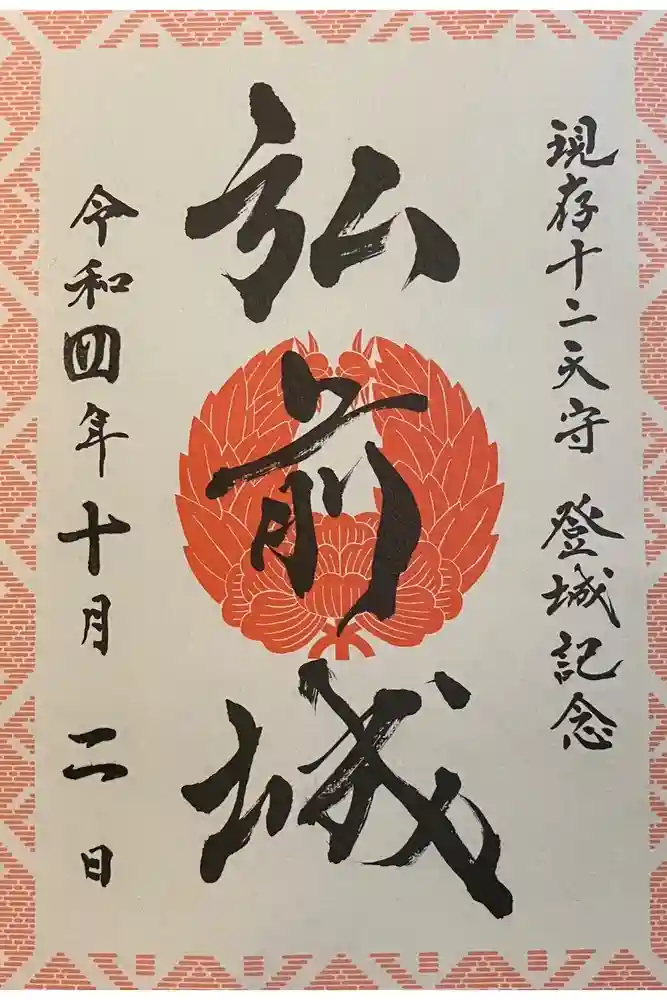 現存十二天守 登城記念
弘前城
令和四年十月二日